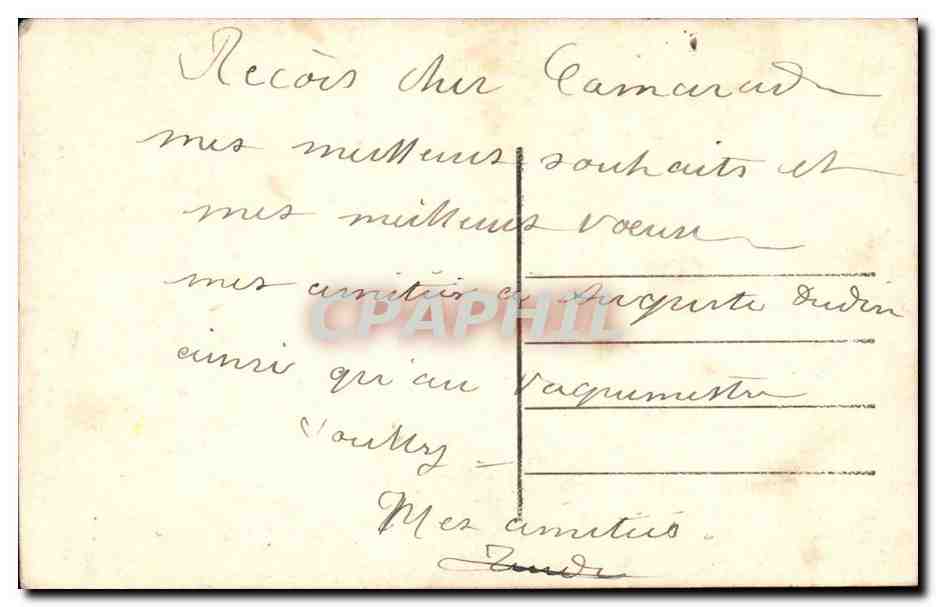 Reçois cher Camarade
mes meilleurs souhaits et
mes meilleurs vœux
mes amitiés a Auguste
ainsi qu'au Vaguemestre
Mes amitiés.
CPAPHIL